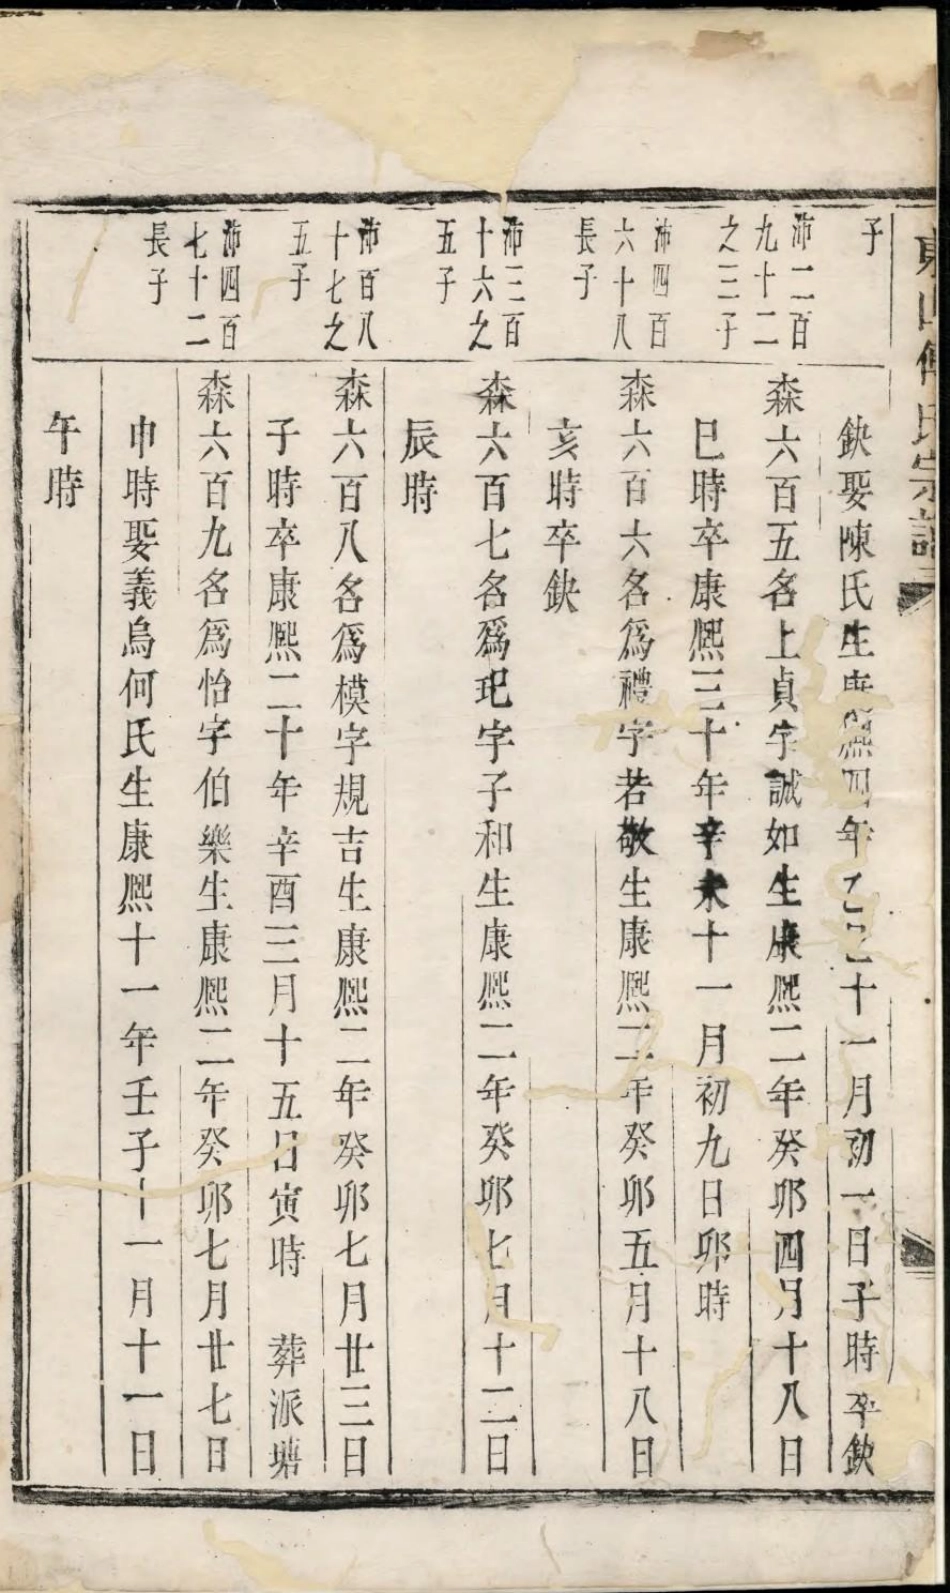 東山傅氏宗譜
子
缺娶陳氏生康熙四年乙巳十一月初一日子時卒缺
沛二百
九十二
之三子
森六百五名上貞字誠如生康熙二年癸卯四月十八日
巳時卒康熙三十年辛未十一月初九日卯時
沛四百
六十八
長子
森六百六名爲禮字若敬生康熙二年癸卯五月十八日
亥時卒缺
沛三百
十六之
五子
森六百七名爲玘字子和生康熙二年癸卯七月十二日
辰時
沛百八
十七之
五子
森六百八名爲模字規吉生康熙二年癸卯七月廿三日
子時卒康熙二十年辛酉三月十五日寅時 葬派塘
沛四百
七十二
長子
森六百九名爲怡字伯樂生康熙二年癸卯七月廿七日
申時娶義烏何氏生康熙十一年壬子十一月十一日
午時